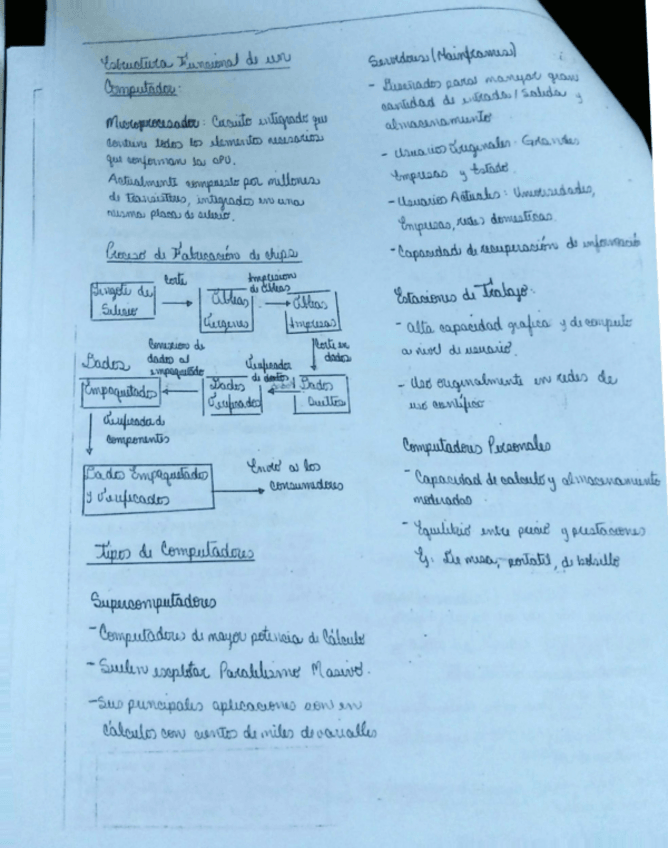 Estructura Funcional de un
Computador:
Microprocesador: Circuito integrado que
contiene todos los elementos necesarios
que conforman la CPU.
Actualmente compuesto por millones
de transistores, integrados en una
misma placa de silicio.
Proceso de Fabricación de chips
Lingote de
Silicio
Corte
Obleas
Vírgenes
Impresion
de Obleas
Obleas
Impresas
Corte en
dados
Dados
Sueltos
Verificador
de dados
Dados
Verificados
Conexion de
dados al
empaquetado
Dados
Empaquetados
Verificada de
componentes
Dados Empaquetados
y Verificados
Envió a los
consumidores
Tipos de Computadores
Supercomputadores
- Computadores de mayor potencia de Cálculo
- Suelen explotar Paralelismo Masivo.
- Sus principales aplicaciones son en
cálculos con cientos de miles de variables
Servidores (Mainframes)
- Diseñados para manejar gran
cantidad de entrada / Salida y
almacenamiento
- Usuarios Originales: Grandes
Empresas y Estado.
- Usuarios Actuales: Universidades,
Empresas, redes domesticas.
- Capacidad de recuperación de informació
Estaciones de Trabajo:
- Alta capacidad grafica y de computo
a nivel de usuario.
- Uso originalmente en redes de
uso científico
Computadores Personales
- Capacidad de calculo y almacenamiento
moderadas
- Equilibrio entre precio y prestaciones
Ej: De mesa, portatil, de bolsillo